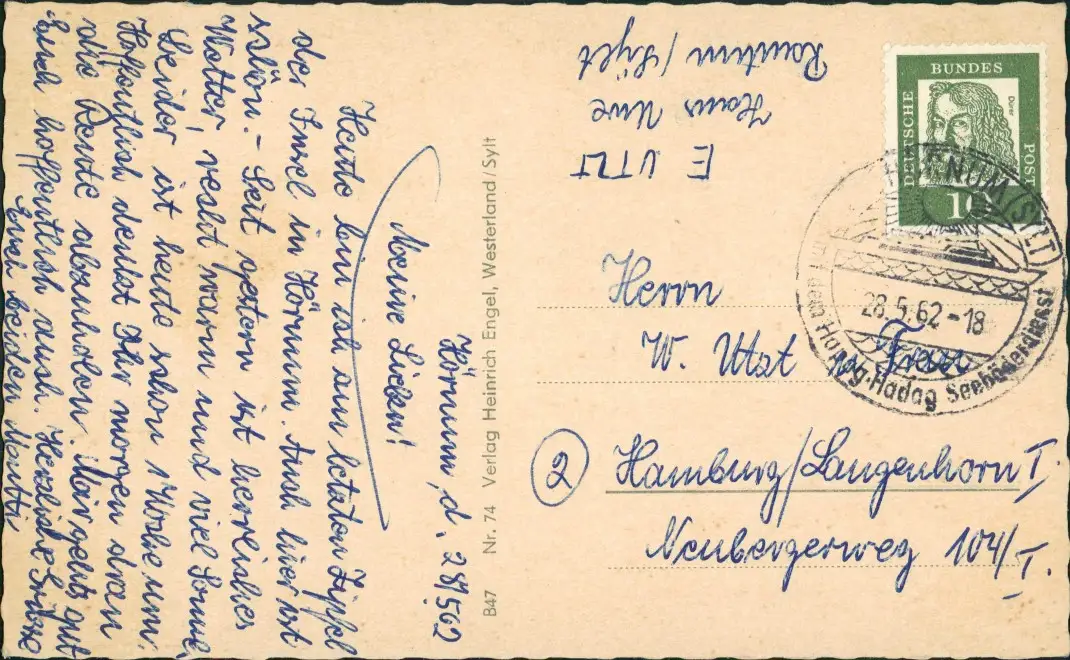 Hörnum, d. 28.5.62
Meine Lieben!
Heute bin ich am letzten Zipfel
der Insel in Hörnum. Auch hier ist
schön. - Seit gestern ist herrliches
Wetter, recht warm und viel Sonne,
Leider ist heute schon 1 Woche um.
Hoffentlich denkst Ihr morgen dran
die Rente abzuholen. Mir geht's gut
Euch hoffentlich auch. Herzliche Grüsse
Euch beiden Mutti
B47 Nr. 74 Verlag Heinrich Engel, Westerland/Sylt
E UTZT
Haus Uwe
Rantum / Sylt
DEUTSCHE BUNDES POST
Dürer
10
HÖRNUM (SYLT)
28.5.62-18
Hapag-Hadag Seebäderdienst
Herrn
W. Utzt u. Frau
2 Hamburg/Langenhorn I,
Neubergerweg 104/I.